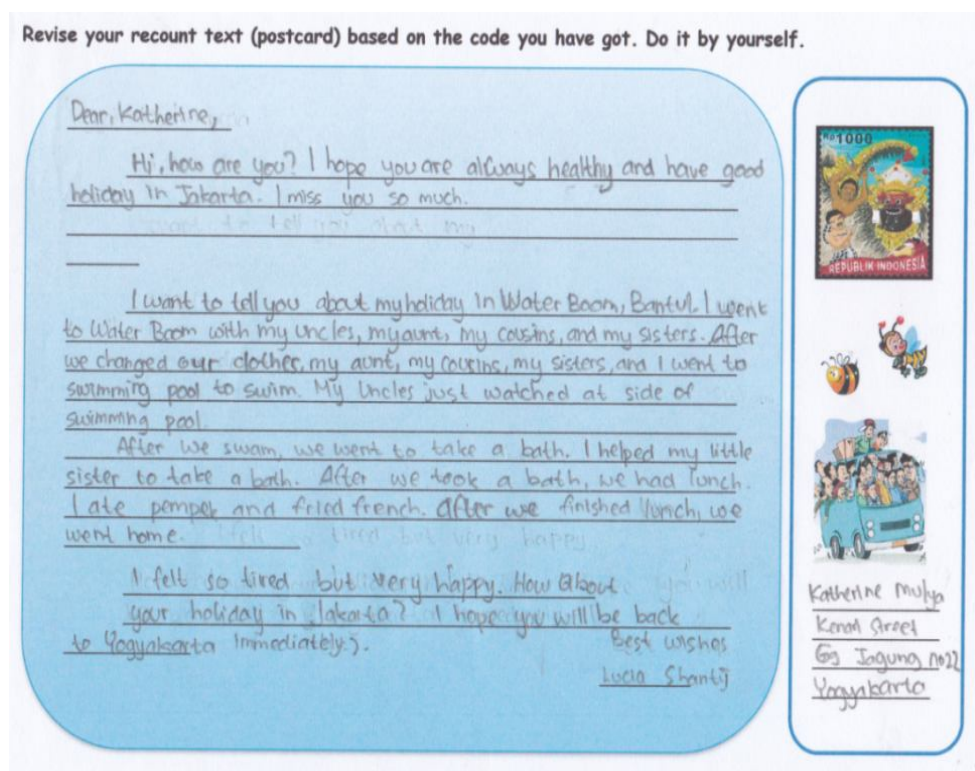 Revise your recount text (postcard) based on the code you have got. Do it by yourself.
Dear, Katherine,
Hi, how are you? I hope you are always healthy and have good
holiday in Jakarta. I miss you so much.
I want to tell you about my holiday in Water Boom, Bantul. I went
to Water Boom with my uncles, my aunt, my cousins, and my sisters. After
we changed our clother, my aunt, my cousins, my sisters, and I went to
swimming pool to swim. My Uncles just watched at side of
swimming pool.
After we swam, we went to take a bath. I helped my little
sister to take a bath. After we took a bath, we had lunch.
I ate pempek and fried french. After we finished lunch, we
went home.
I felt so tired but very happy. How about
your holiday in Jakarta? I hope you will be back
to Yogyakarta immediately :).
Best wishes
Lucia Shantij
Rp1000
REPUBLIK INDONESIA
Katherine Mulya
Kenari Street
Gg Jagung no22
Yogyakarta